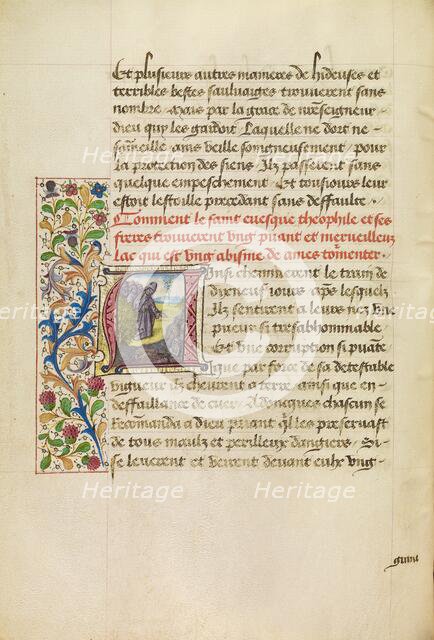 Et plusieurs autres manieres de hideuses et
terribles bestes sauluaiges trouuerent sans
nombre Mais par la grace de nreseigneur
dieu quy les gardoit Laquelle ne dort ne
sommeille ains veille soingneusement pour
la protection des siens Ilz passerent sans
quelque empeschement Et tousiours leur
estoit lestoille precedant sans deffaulte
Comment le saint euesque theophile et ses
freres trouuerent vng puant et merueilleux
Lac qui est vng abisme de ames tormenter
Ainsi cheminerent le train de
dixneuf iours apres lesquelz
Ilz sentirent a leure nez vne
pueur si tresabhommable
Et vne corruption si puate
que par force de sa detestable
vigueur Ilz cheurent a terre ainsi que en
deffaillance de cuer Adoncques chascun se
recommanda a dieu priant ql les preseruast
de tous maulz et perilleux dangiers Si
se leuerent et veirent deuant eulx vng
Heritage
Heritage
Heritage
Heritage
Heritage
Heritage